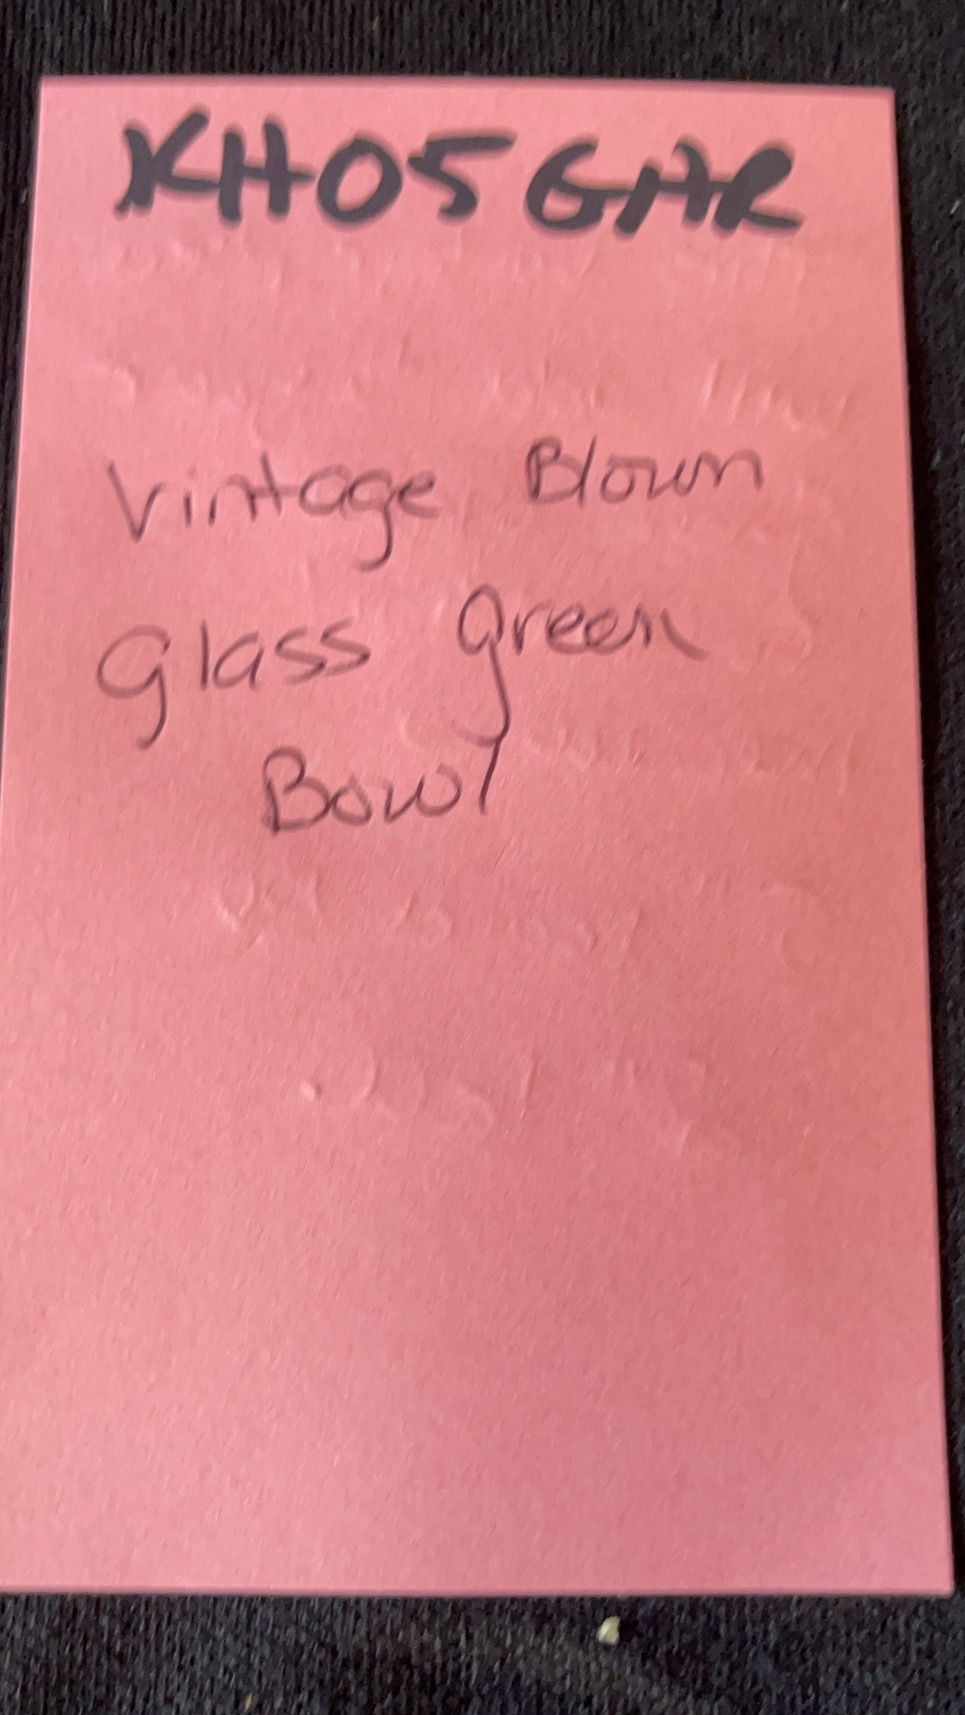 KH05GAR
Vintage Blown
Glass green
Bowl